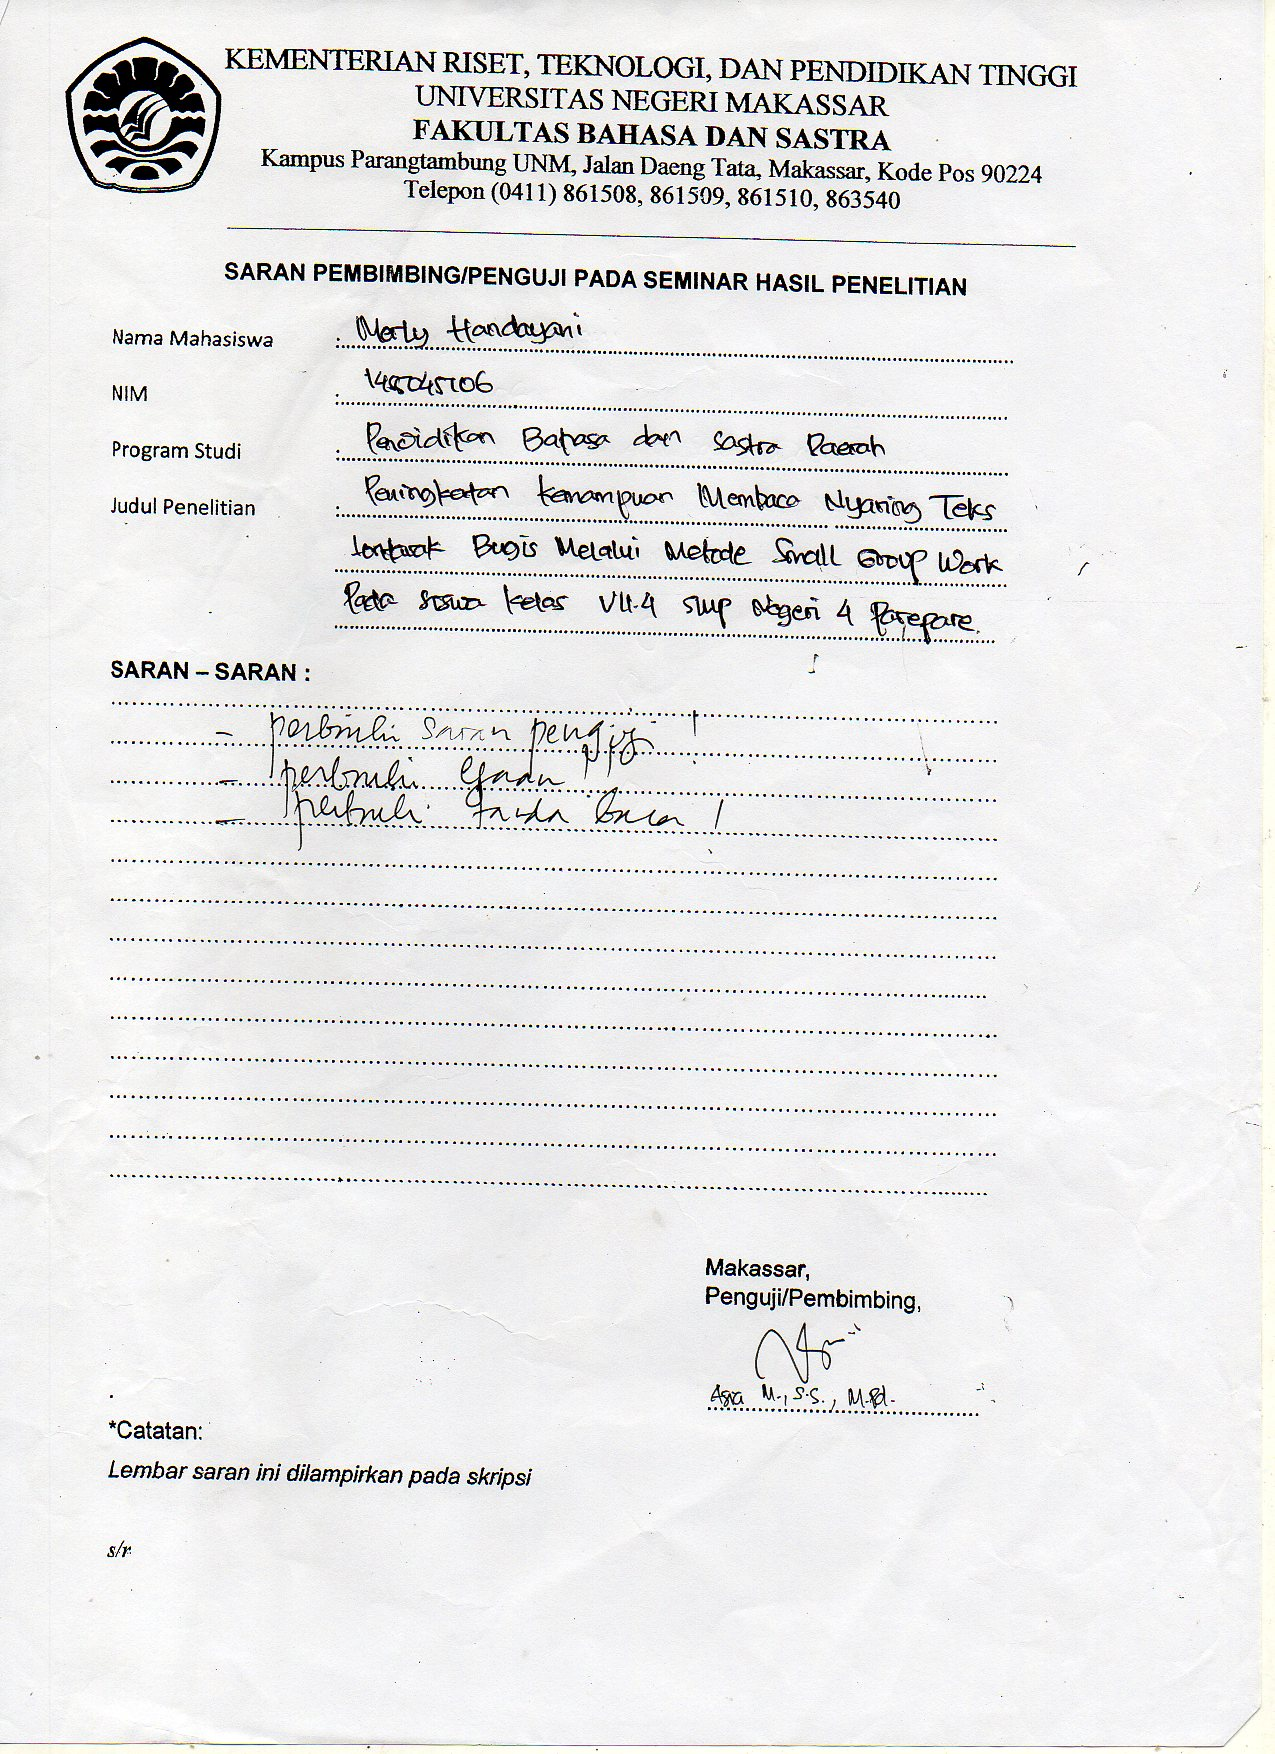 KEMENTERIAN RISET, TEKNOLOGI, DAN PENDIDIKAN TINGGI
UNIVERSITAS NEGERI MAKASSAR
FAKULTAS BAHASA DAN SASTRA
Kampus Parangtambung UNM, Jalan Daeng Tata, Makassar, Kode Pos 90224
Telepon (0411) 861508, 861509, 861510, 863540
SARAN PEMBIMBING/PENGUJI PADA SEMINAR HASIL PENELITIAN
Nama Mahasiswa : Merly Handayani
NIM :
Program Studi : Pendidikan Bahasa dan Sastra Daerah
Judul Penelitian : Peningkatan Kemampuan Membaca Nyaring Teks
Lontarak Bugis Melalui Metode Small Group Work
Pada Siswa Kelas VII.4 SMP Negeri 4 Parepare.
SARAN – SARAN :
- perbaiki saran penguji !
- perbaiki Ejaan
- perbaiki tanda baca !
Makassar,
Penguji/Pembimbing,
Asia M., S.S., M.Pd.
*Catatan:
Lembar saran ini dilampirkan pada skripsi
s/r